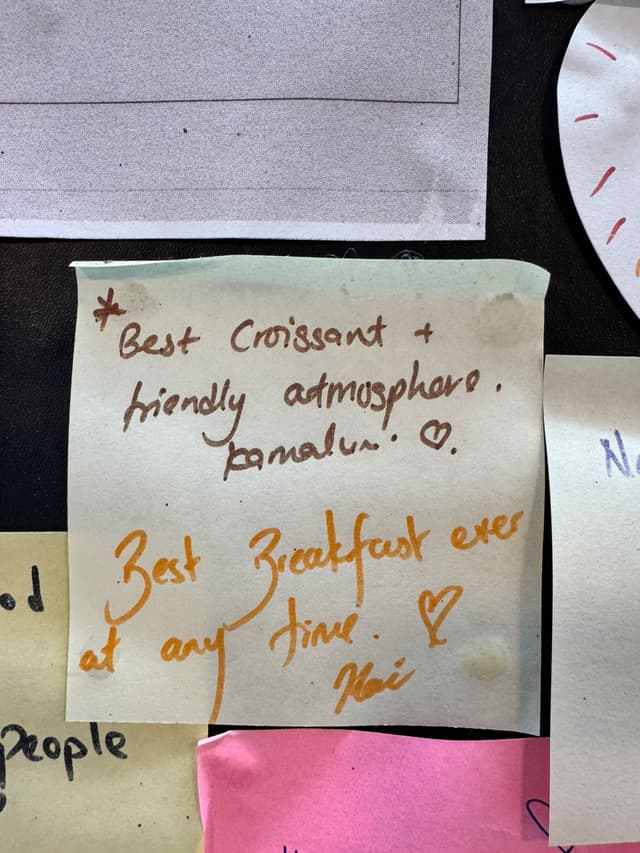 * Best Croissant +
friendly atmosphere.
♡.
Best Breakfast ever
at any time. ♡
od
people